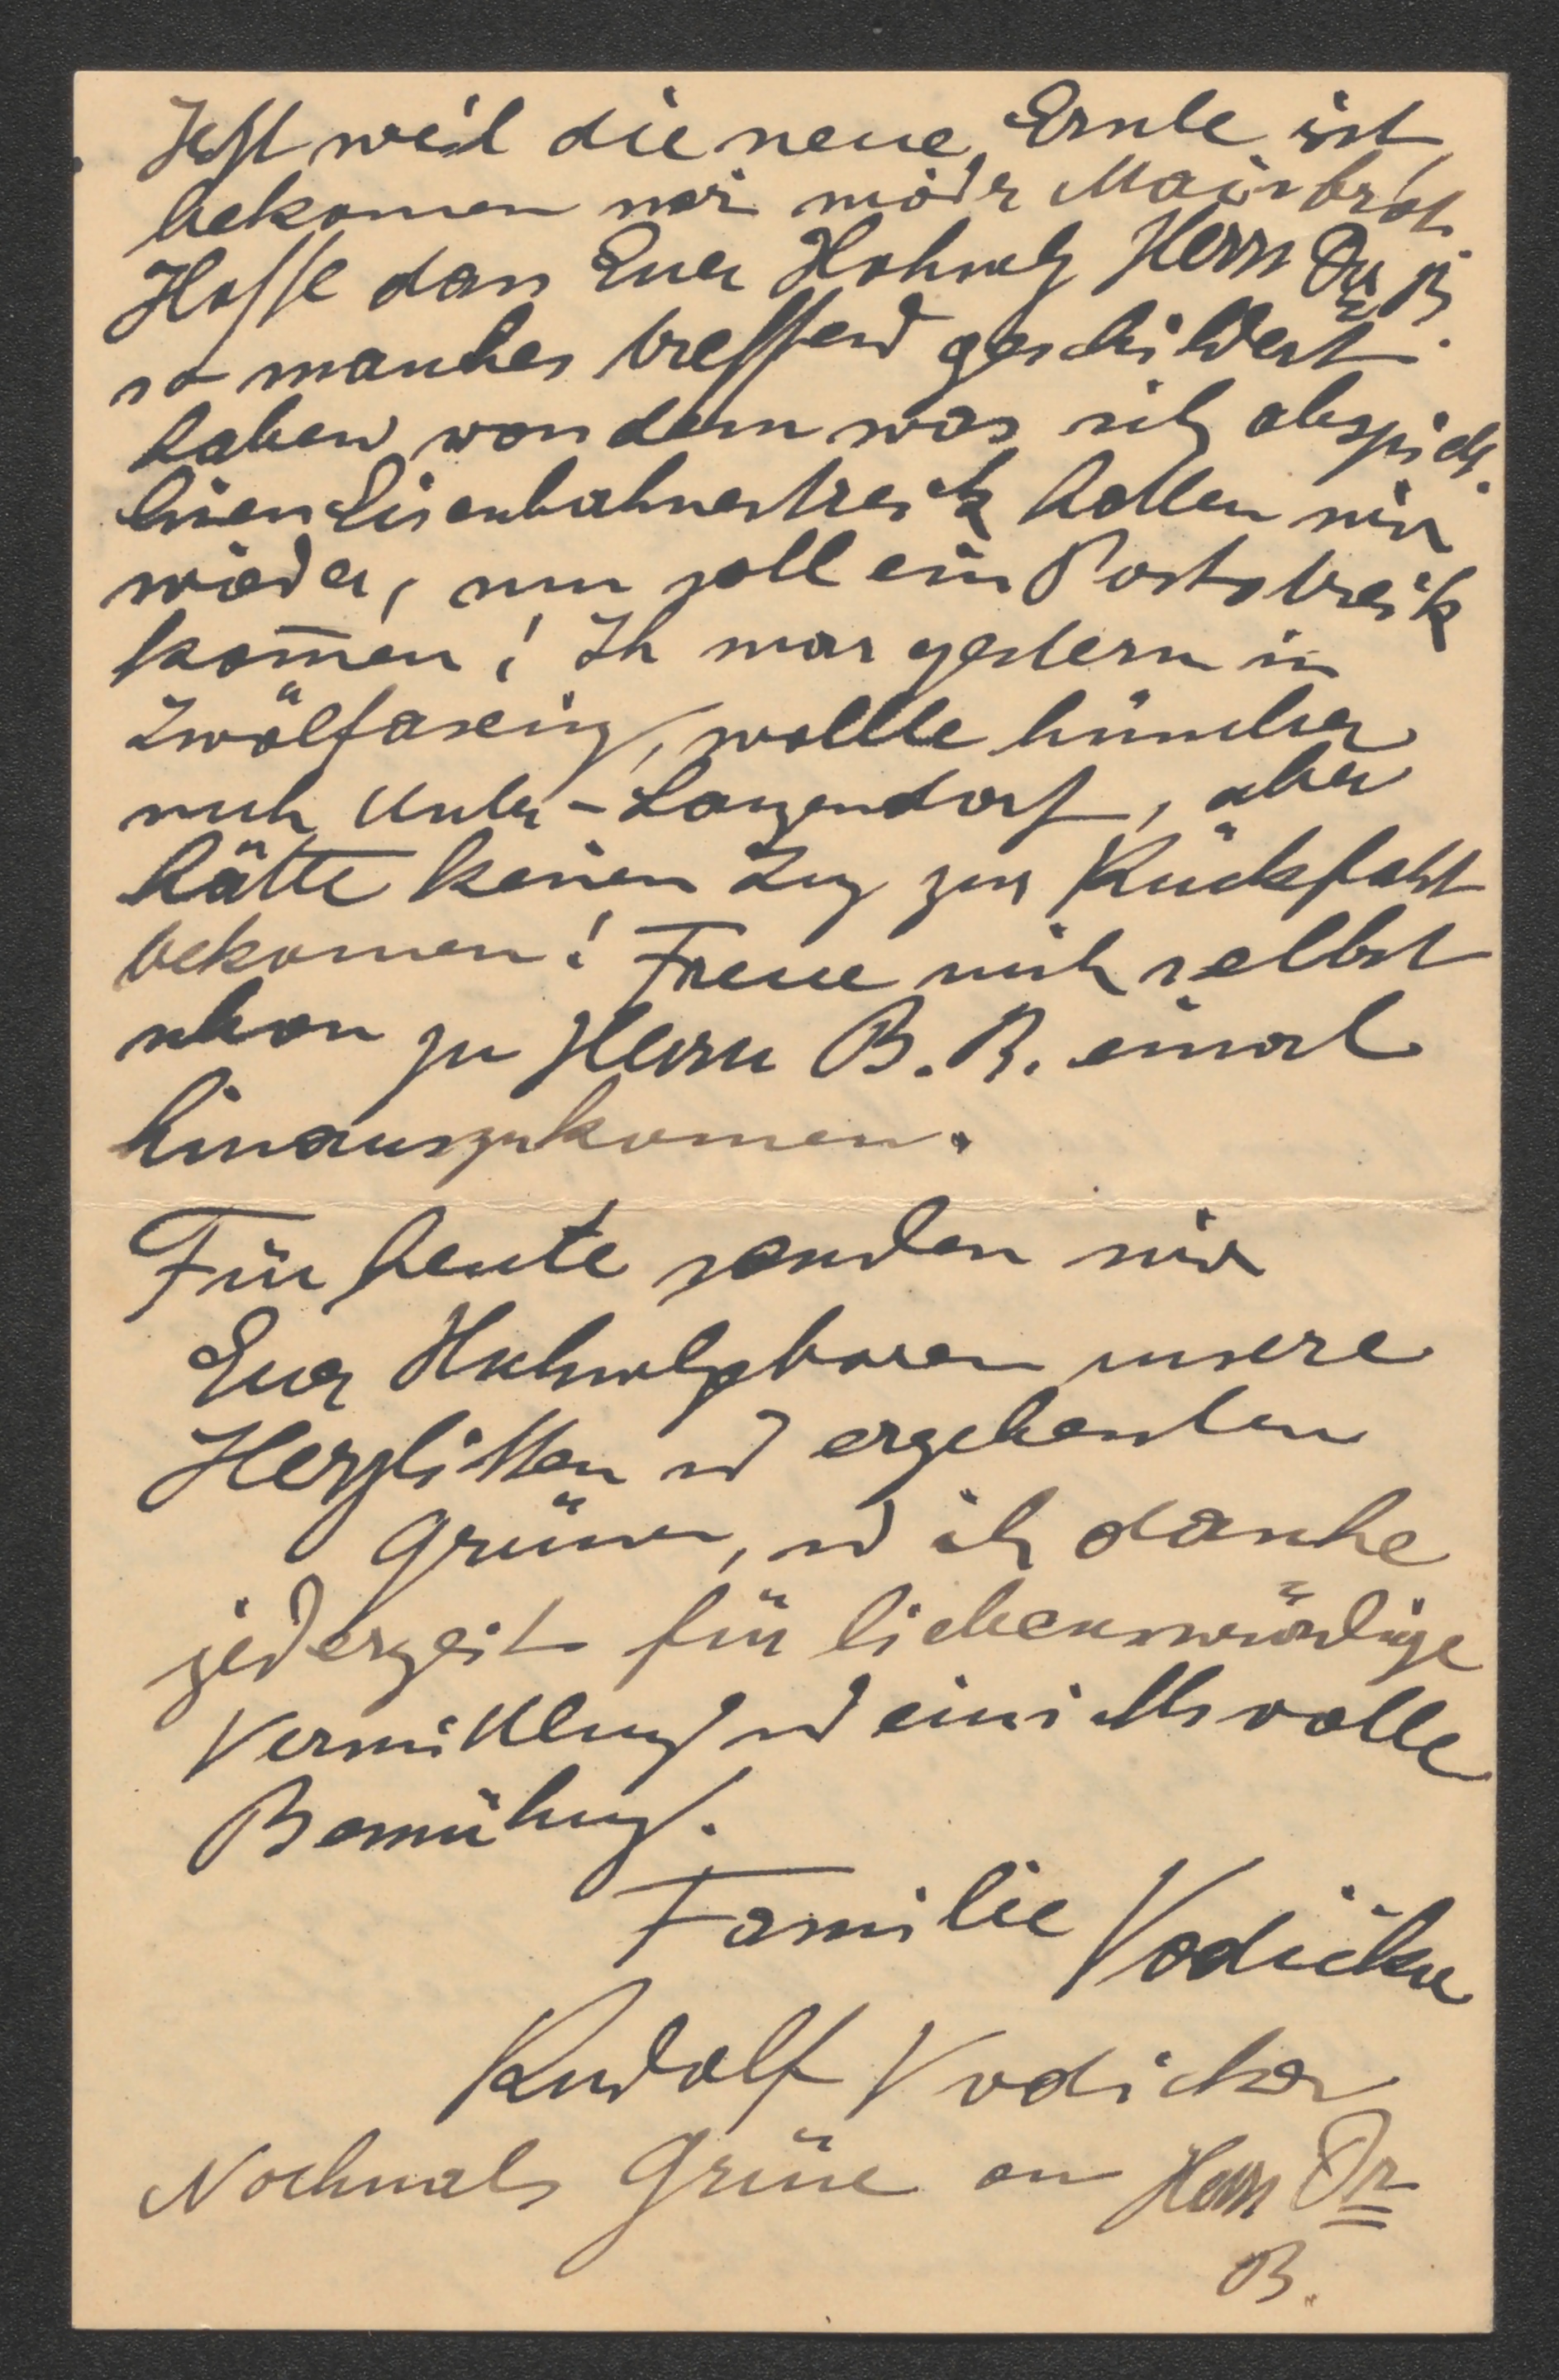 Jetzt weil die neue Ernte ist
bekomen wir wieder Maisbrot.
Hoffe dass Euer Hochwolg Herrn Dr. B
so manches treffend geschildert
haben von dem was sich abspielt.
Einen Eisenbahnerstreik hatten wir
wieder, nun soll ein Poststreik
kom̄en! Ich war gestern in
Zwölfaxing, wollte hinüber
nach Unter-Lanzendorf, aber
hätte keinen Zug zur Rückfahrt
bekomen! Freue mich selbst
schon zu Herrn B. R. einmal
hinauszukomen.
Für heute senden wir
Euer Hochwolgeboren unsere
Herzlichsten und ergebensten
Grüsse, und ich danke
jederzeit für liebenswürdige
Vermittlung und einsichtsvolle
Bemühung.
Familie Vodička
Rudolf Vodicka
Nochmals Grüsse an Herrn Dr
B.